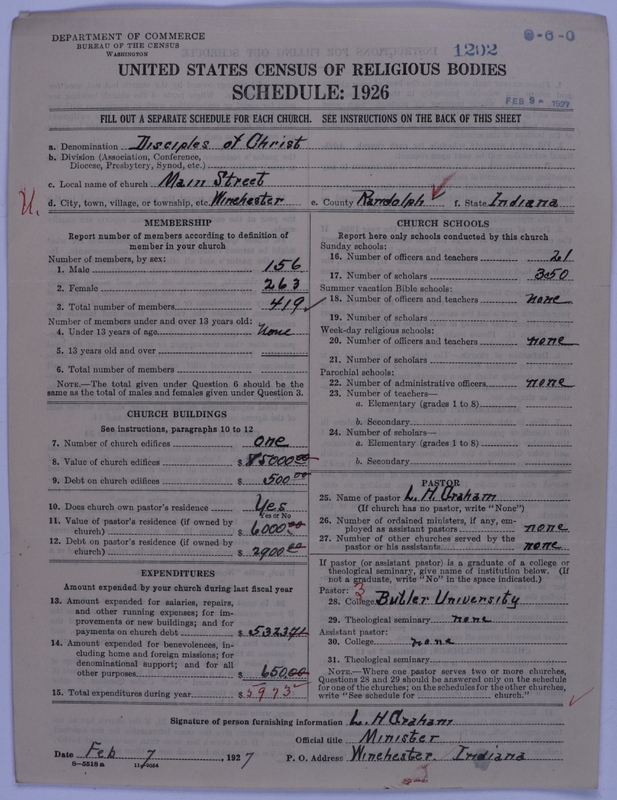 DEPARTMENT OF COMMERCE
BUREAU OF THE CENSUS
WASHINGTON
1202
8-6-0
UNITED STATES CENSUS OF RELIGIOUS BODIES
SCHEDULE: 1926
FEB 9 - 1927
FILL OUT A SEPARATE SCHEDULE FOR EACH CHURCH. SEE INSTRUCTIONS ON THE BACK OF THIS SHEET
a. Denomination Disciples of Christ
b. Division (Association, Conference,
Diocese, Presbytery, Synod, etc.)
c. Local name of church Main Street
d. City, town, village, or township, etc. Winchester e. County Randolph f. State Indiana
U.
MEMBERSHIP
Report number of members according to definition of
member in your church
Number of members, by sex:
1. Male 156
2. Female 263
3. Total number of members 419
Number of members under and over 13 years old:
4. Under 13 years of age none
5. 13 years old and over
6. Total number of members
NOTE.—The total given under Question 6 should be the
same as the total of males and females given under Question 3.
CHURCH BUILDINGS
See instructions, paragraphs 10 to 12
7. Number of church edifices one
8. Value of church edifices $ 85000.00
9. Debt on church edifices $ 500.00
10. Does church own pastor's residence Yes
Yes or No
11. Value of pastor's residence (if owned by
church) $ 6000.00
12. Debt on pastor's residence (if owned by
church) $ 2900.00
EXPENDITURES
Amount expended by your church during last fiscal year
13. Amount expended for salaries, repairs,
and other running expenses; for im-
provements or new buildings; and for
payments on church debt $ 532371
14. Amount expended for benevolences, in-
cluding home and foreign missions; for
denominational support; and for all
other purposes $ 650.00
15. Total expenditures during year $ 5973
CHURCH SCHOOLS
Report here only schools conducted by this church
Sunday schools:
16. Number of officers and teachers 21
17. Number of scholars 350
Summer vacation Bible schools:
18. Number of officers and teachers none
19. Number of scholars
Week-day religious schools:
20. Number of officers and teachers none
21. Number of scholars
Parochial schools:
22. Number of administrative officers none
23. Number of teachers—
a. Elementary (grades 1 to 8)
b. Secondary
24. Number of scholars—
a. Elementary (grades 1 to 8)
b. Secondary
PASTOR
25. Name of pastor L. H. Graham
(If church has no pastor, write "None")
26. Number of ordained ministers, if any, em-
ployed as assistant pastors none
27. Number of other churches served by the
pastor or his assistants none
If pastor (or assistant pastor) is a graduate of a college or
theological seminary, give name of institution below. (If
not a graduate, write "No" in the space indicated.)
Pastor: 3
28. College Butler University
29. Theological seminary none
Assistant pastor:
30. College none
31. Theological seminary
NOTE.—Where one pastor serves two or more churches,
Questions 28 and 29 should be answered only on the schedule
for one of the churches; on the schedules for the other churches,
write "See schedule for church."
Signature of person furnishing information L. H Graham
Official title Minister
Date Feb 7, 1927 P. O. Address Winchester Indiana
8-5518 a